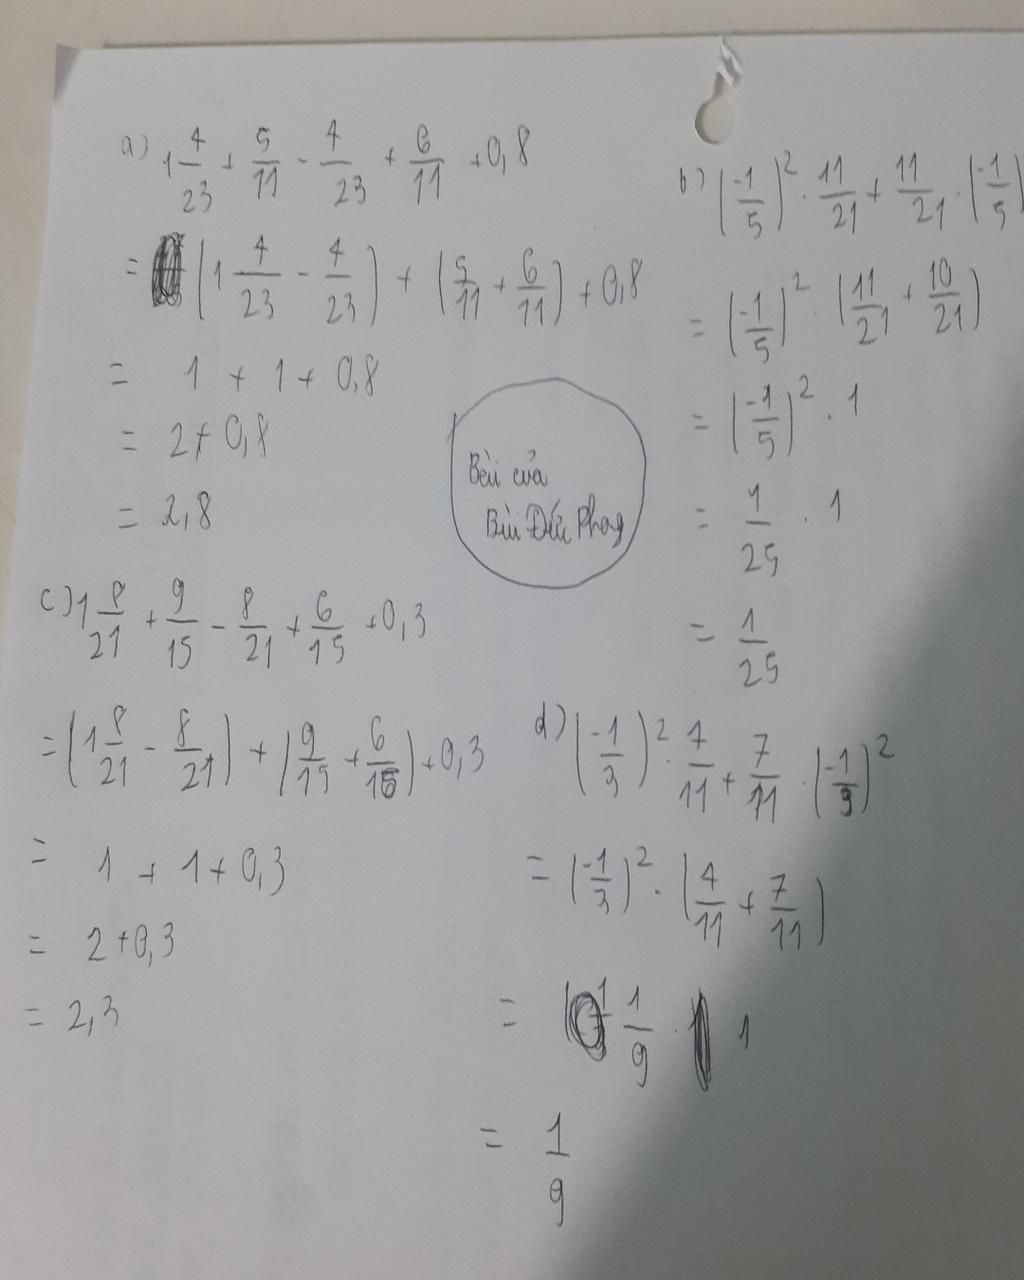 a) 1 4/23 + 5/11 - 4/23 + 6/11 + 0,8
= (1 4/23 - 4/23) + (5/11 + 6/11) + 0,8
= 1 + 1 + 0,8
= 2 + 0,8
= 2,8
b) (-1/5)² . 11/21 + 11/21 . (-1/5)
= (-1/5)² . (11/21 + 10/21)
= (-1/5)² . 1
= 1/25 . 1
= 1/25
Bài của
Bùi Đức Phong
c) 1 8/21 + 9/15 - 8/21 + 6/15 + 0,3
= (1 8/21 - 8/21) + (9/15 + 6/15) + 0,3
= 1 + 1 + 0,3
= 2 + 0,3
= 2,3
d) (-1/3)² . 4/11 + 7/11 . (-1/3)²
= (-1/3)² . (4/11 + 7/11)
= 1/9 . 1
= 1/9